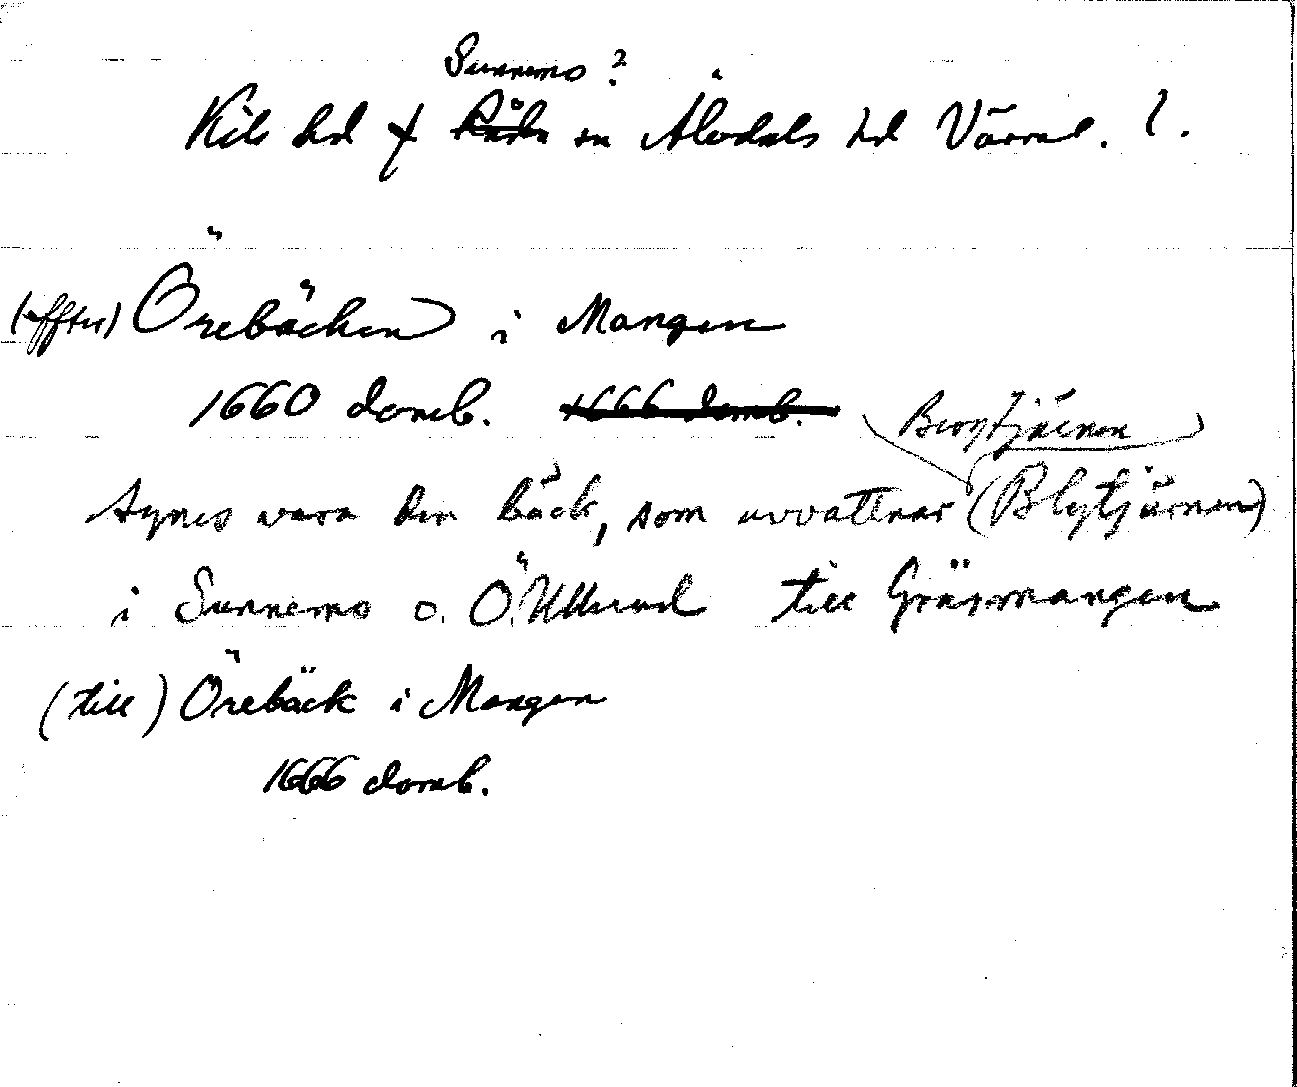 Sunnemo ?
Kils hd f Råda sn Älvdals hd Värml. ?.
(effter) Örebäcken i Mangen
1660 domb. 1666 domb.
Bergtjärnen
synes vara den bäck, som avvattnar (Blytjärnen)
i Sunnemo o. Ö. Ullerud till Gräsmangen
(till) Örebäck i Mangen
1666 domb.